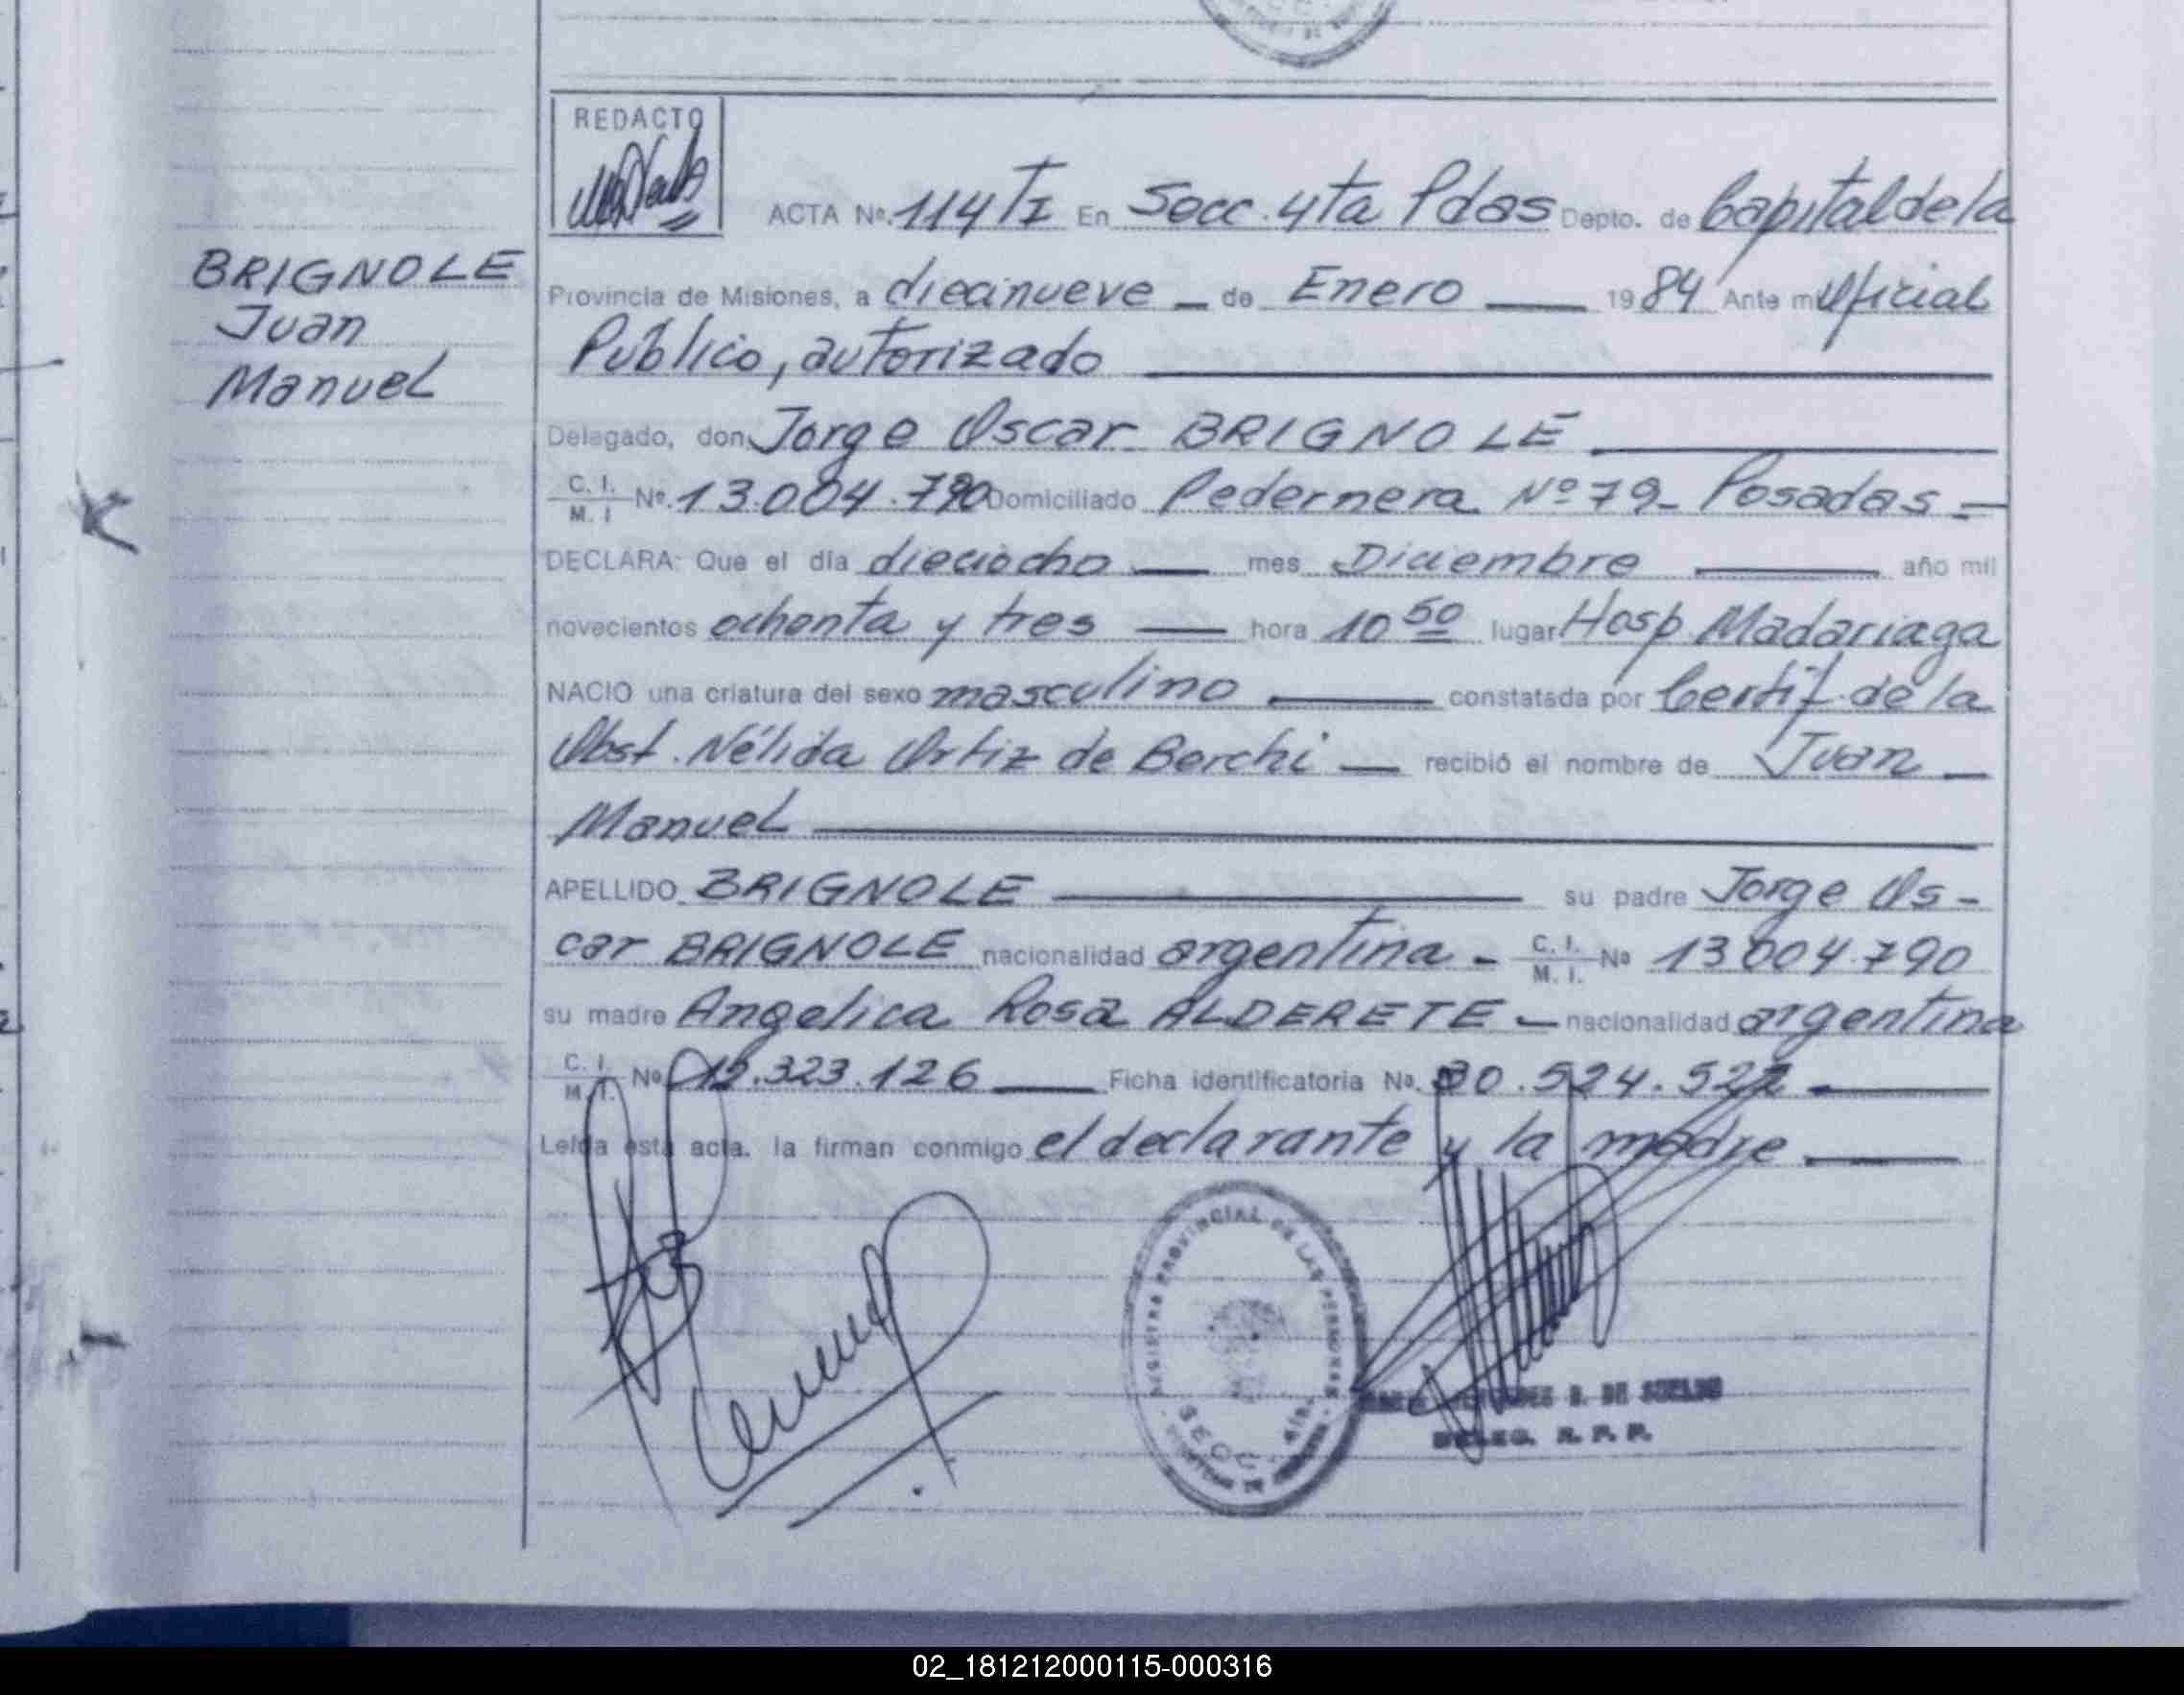 REDACTO
ACTA Nº. 114 TI En Secc. 4ta Pdas Depto. de Capital de la
BRIGNOLE
Juan
Manuel
Provincia de Misiones, a diecinueve — de Enero — 1984 Ante mi Oficial
Público, autorizado
Delegado, don Jorge Oscar BRIGNOLE
C. I. / M. I Nº. 13.004.790 Domiciliado Pedernera Nº 79- Posadas =
DECLARA: Que el día dieciocho — mes Diciembre — año mil
novecientos ochenta y tres — hora 10 50 lugar Hosp. Madariaga
NACIO una criatura del sexo masculino — constatada por Certif. de la
Obst. Nélida Ortiz de Borchi — recibió el nombre de Juan —
Manuel
APELLIDO BRIGNOLE — su padre Jorge Os-
car BRIGNOLE nacionalidad argentina - C. I. / M. I. Nº 13.004.790
su madre Angelica Rosa ALDERETE — nacionalidad argentina
C. I. / M. I. Nº 12.323.126 — Ficha identificatoria Nº. 30.524.522 —
Leída esta acta. la firman conmigo el declarante y la madre —
REGISTRO PROVINCIAL DE LAS PERSONAS
SECC. 4ta.
DELEG. R. P. P.
02_181212000115-000316